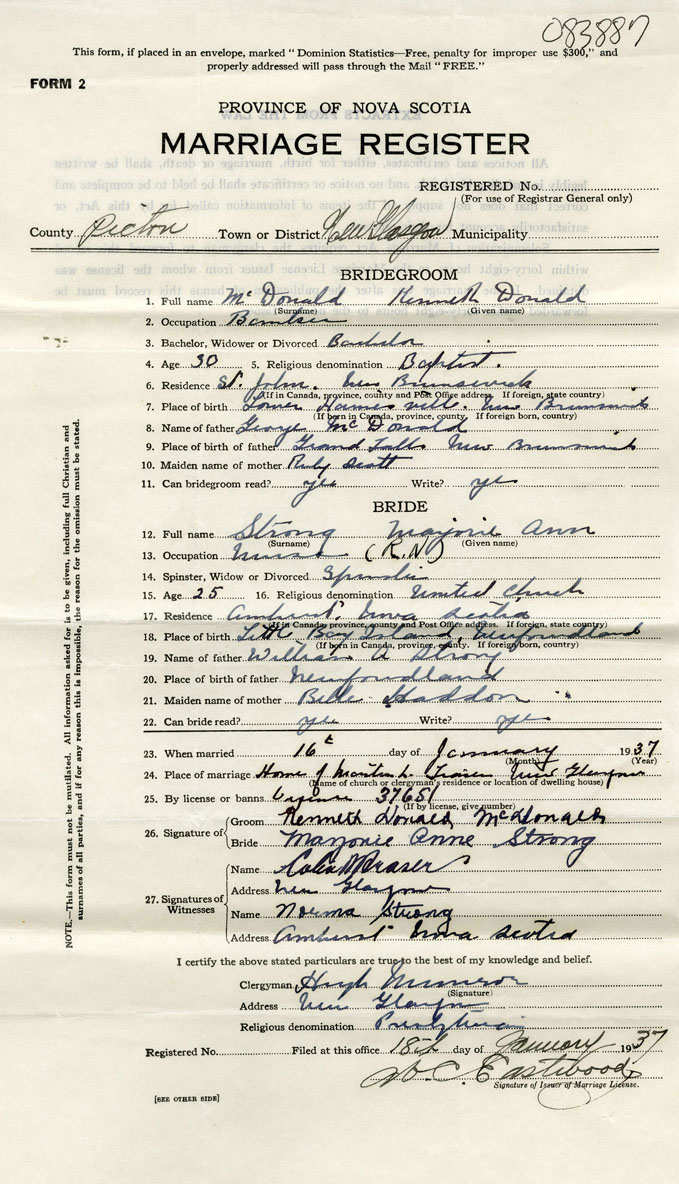 083887
This form, if placed in an envelope, marked “Dominion Statistics—Free, penalty for improper use $300,” and
properly addressed will pass through the Mail “FREE.”
FORM 2
PROVINCE OF NOVA SCOTIA
MARRIAGE REGISTER
REGISTERED No.
(For use of Registrar General only)
County Pictou Town or District New Glasgow Municipality
BRIDEGROOM
1. Full name McDonald Kenneth Donald
(Surname) (Given name)
2. Occupation
3. Bachelor, Widower or Divorced Bachelor
4. Age 30 5. Religious denomination Baptist.
6. Residence St. John. New Brunswick
(If in Canada, province, county and Post Office address. If foreign, state country)
7. Place of birth Lower Hainesville. New Brunswick
(If born in Canada, province, county. If foreign born, country)
8. Name of father George McDonald
9. Place of birth of father Grand Falls New Brunswick
10. Maiden name of mother Ruby Scott
11. Can bridegroom read? yes Write? yes
BRIDE
12. Full name Strong Marjorie Ann
(Surname) (Given name)
13. Occupation Nurse (R.N)
14. Spinster, Widow or Divorced Spinster
15. Age 25 16. Religious denomination United Church
17. Residence Amherst, Nova Scotia
(If in Canada, province, county and Post Office address. If foreign, state country)
18. Place of birth Little Bay Island, Newfoundland
(If born in Canada, province, county. If foreign born, country)
19. Name of father William A Strong
20. Place of birth of father Newfoundland
21. Maiden name of mother Belle Haddon
22. Can bride read? yes Write? yes
23. When married 16th day of January 1937
(Month) (Year)
24. Place of marriage Home of Martin L. Fraser New Glasgow
(Name of church or clergyman's residence or location of dwelling house)
25. By license or banns License 37651
(If by license, give number)
26. Signature of Groom Kenneth Donald McDonald
Bride Marjorie Anne Strong
27. Signatures of Witnesses
Name Fraser
Address New Glasgow
Name Norma Strong
Address Amherst Nova Scotia
I certify the above stated particulars are true to the best of my knowledge and belief.
Clergyman Hugh Munroe
(Signature)
Address New Glasgow
Religious denomination Presbyterian
Registered No. Filed at this office 18th day of January 1937
C. Eastwood
Signature of Issuer of Marriage License.
[SEE OTHER SIDE]
NOTE.—This form must not be mutilated. All information asked for is to be given, including full Christian and
surnames of all parties, and if for any reason this is impossible, the reason for the omission must be stated.